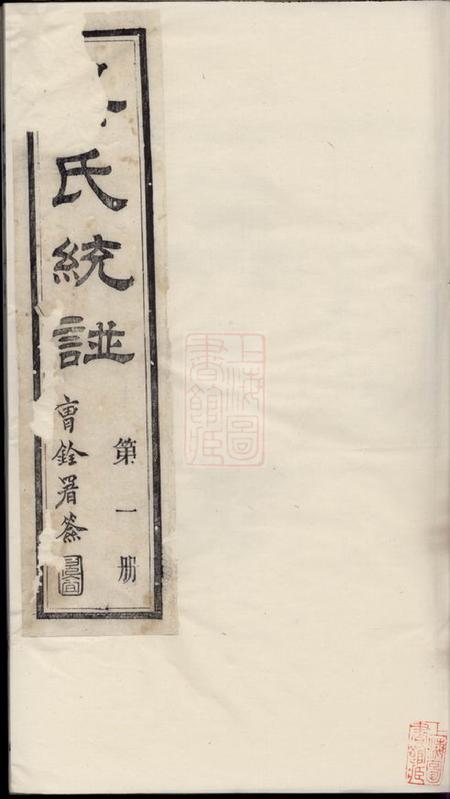 氏統譜
第一册
曾銓署簽
上海圖書館藏
上海圖書館藏